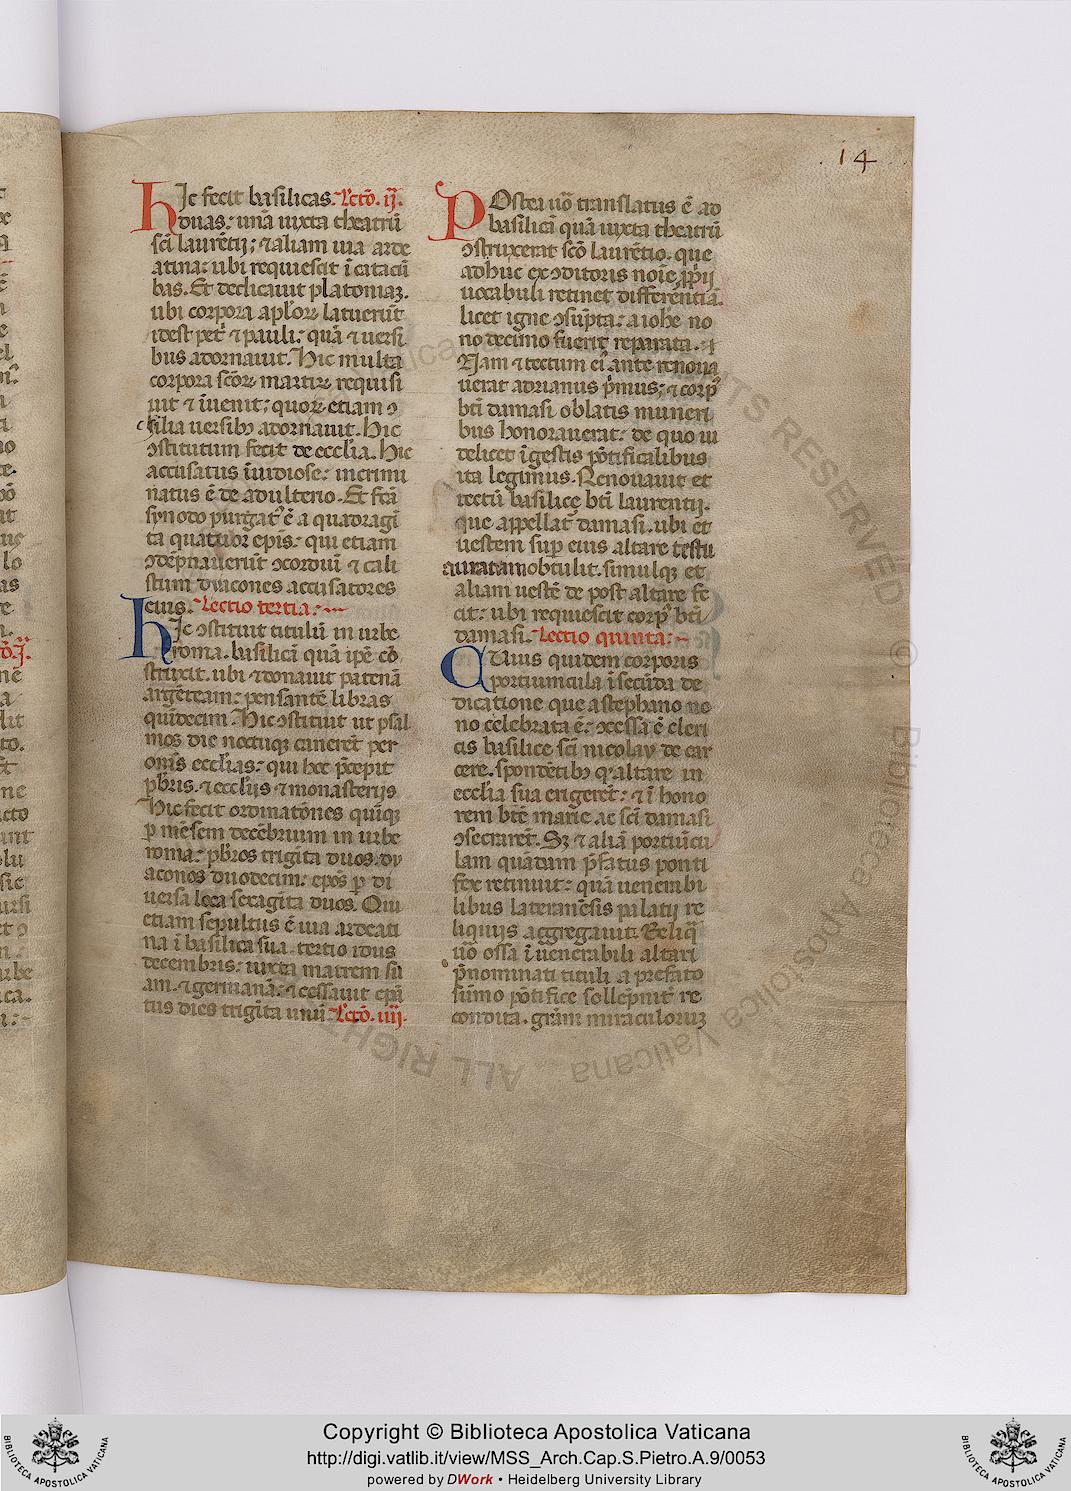 . 14 . .
Hic fecit basilicas. Lectō. ij.
duas: unā iuxta theatrū
sc̄i laurētij; ⁊ aliam uia arde
atina: ubi requiescit ī catacū
bas. Et dedicauit platomaꝫ.
ubi corpora apl̄oꝝ latuerūt
idest pet̓ ⁊ pauli: quā ⁊ uersi
bus adornauit. Hic multa
corpora sc̄oꝝ martiꝝ requisi
uit ⁊ īuenit; quoꝝ etiam ꝯ
silia uersibꝰ adornauit. Hic
ꝯstitutum fecit de eccl̄ia. Hic
accusatus īuidiose: incrimi
natus ē de adulterio. Et fc̄ā
synodo purgatꝰ ē a quadragī
ta quatuor ep̄is: qui etiam
ꝯdēpnauerūt ꝯcordiū ⁊ cali
stum diacones accusatores
eius. Lectio tertia:
Hic ꝯstituit titulū in urbe
roma. basilicā quā ip̄e cō
struxit. ubi ⁊ donauit patenā
argēteam: pensantē libras
quīdecim. Hic ꝯstituit ut psal
mos die noctuqꝫ canerēt per
om̄s eccl̄ias: qui hec p̄cepit
pb̄ris. ⁊ eccl̄ijs ⁊ monasterijs
Hic fecit ordinatōnes quīqꝫ
ꝑ mēsem decēbrium in urbe
roma: pb̄ros trigīta duos. dy
aconos duodecim: ep̄os ꝑ di
uersa loca sexagīta duos. Qui
etiam sepultus ē uia ardeati
na ī basilica sua. tertio idus
decembris: iuxta matrem su
am. ⁊ germanā: ⁊ cessauit ep̄a
tus dies trigīta unū. Lectō. iiij.
Postea uō translatus ē ad
basilicā quā iuxta theatrū
ꝯstruxerat sc̄o laurētio. que
adhuc ex ꝯditoris noīe ꝓprij
uocabuli retinet differētiā.
licet igne ꝯsūpta: a iohe no
no decimo fuerit reparata.
Nam ⁊ tectum eiꝰ ante renoua
uerat adrianus p̄mus; ⁊ corpꝰ
bt̄i damasi oblatis muneri
bus honorauerat: de quo ui
delicet ī gestis pōtificalibus
ita legimus. Renouauit et
tectū basilicę bt̄i laurentij.
que appellat̄ damasi. ubi et
uestem suꝑ eius altare testu
auratam obtulit. simulqꝫ et
aliam uestē de post altare fe
cit: ubi requiescit corpꝰ bt̄i
damasi. Lectio quinta:
Cuius quidem corꝑoris
portiumcula ī secūda de
dicatione que a stephano no
no celebrata ē: ꝯcessa ē cleri
cis basilice sc̄i nicolay de car
cere. spondētibꝰ qꝰ altare in
eccl̄ia sua erigerēt: ⁊ ī hono
rem btē marie ac sc̄i damasi
ꝯsecrarēt. Sꝫ ⁊ aliā portiūcu
lam quādam p̄fatus ponti
fex retinuit: quā uenerabi
libus lateranēsis palatij re
liquijs aggregauit. Reliqͣ
uō ossa ī uenerabili altari
p̄nominati tituli a prefato
sūmo pōtifice sollēpnit̓ re
condita. grām miraculorum
ALL RIGHTS RESERVED © Biblioteca Apostolica Vaticana
Copyright © Biblioteca Apostolica Vaticana
http://digi.vatlib.it/view/MSS_Arch.Cap.S.Pietro.A.9/0053
powered by DWork • Heidelberg University Library
BIBLIOTECA APOSTOLICA VATICANA
BIBLIOTECA APOSTOLICA VATICANA